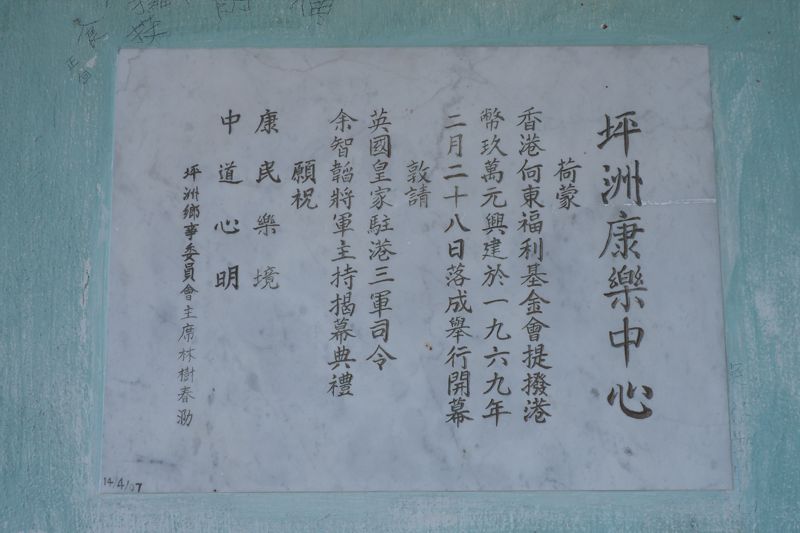 坪洲康樂中心
荷蒙
香港何東福利基金會提撥港
幣玖萬元興建於一九六九年
二月二十八日落成舉行開幕
敦請
英國皇家駐港三軍司令
余智韜將軍主持揭幕典禮
願祝
康民樂境
中道心明
坪洲鄉事委員會主席林樹春泐
14/4/07